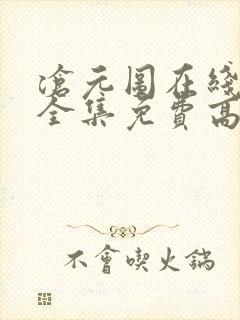 滄元圖在綫
全集免費高
不會喫火鍋